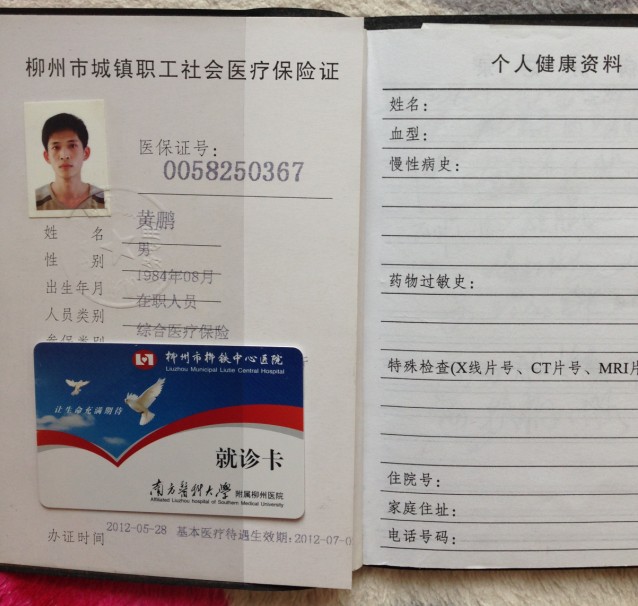 柳州市城镇职工社会医疗保险证
医保证号：
0058250367
姓 名 黄鹏
性 别 男
出生年月 1984年08月
人员类别 在职人员
参保类别 综合医疗保险
柳州市柳铁中心医院
Liuzhou Municipal Liutie Central Hospital
让生命充满期待
就诊卡
南方医科大学 附属柳州医院
Affiliated Liuzhou hospital of Southern Medical University
办证时间 2012-05-28 基本医疗待遇生效期:2012-07-0
个人健康资料
姓名：
血型：
慢性病史：
药物过敏史：
特殊检查(X线片号、CT片号、MRI片
住院号：
家庭住址：
电话号码：